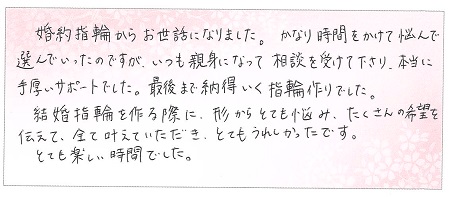 婚約指輪からお世話になりました。かなり時間をかけて悩んで
選んでいったのですが、いつも親身になって相談を受けて下さり、本当に
手厚いサポートでした。最後まで納得いく指輪作りでした。
結婚指輪を作る際に、形からとても悩み、たくさんの希望を
伝えて、全て叶えていただき、とてもうれしかったです。
とても楽しい時間でした。